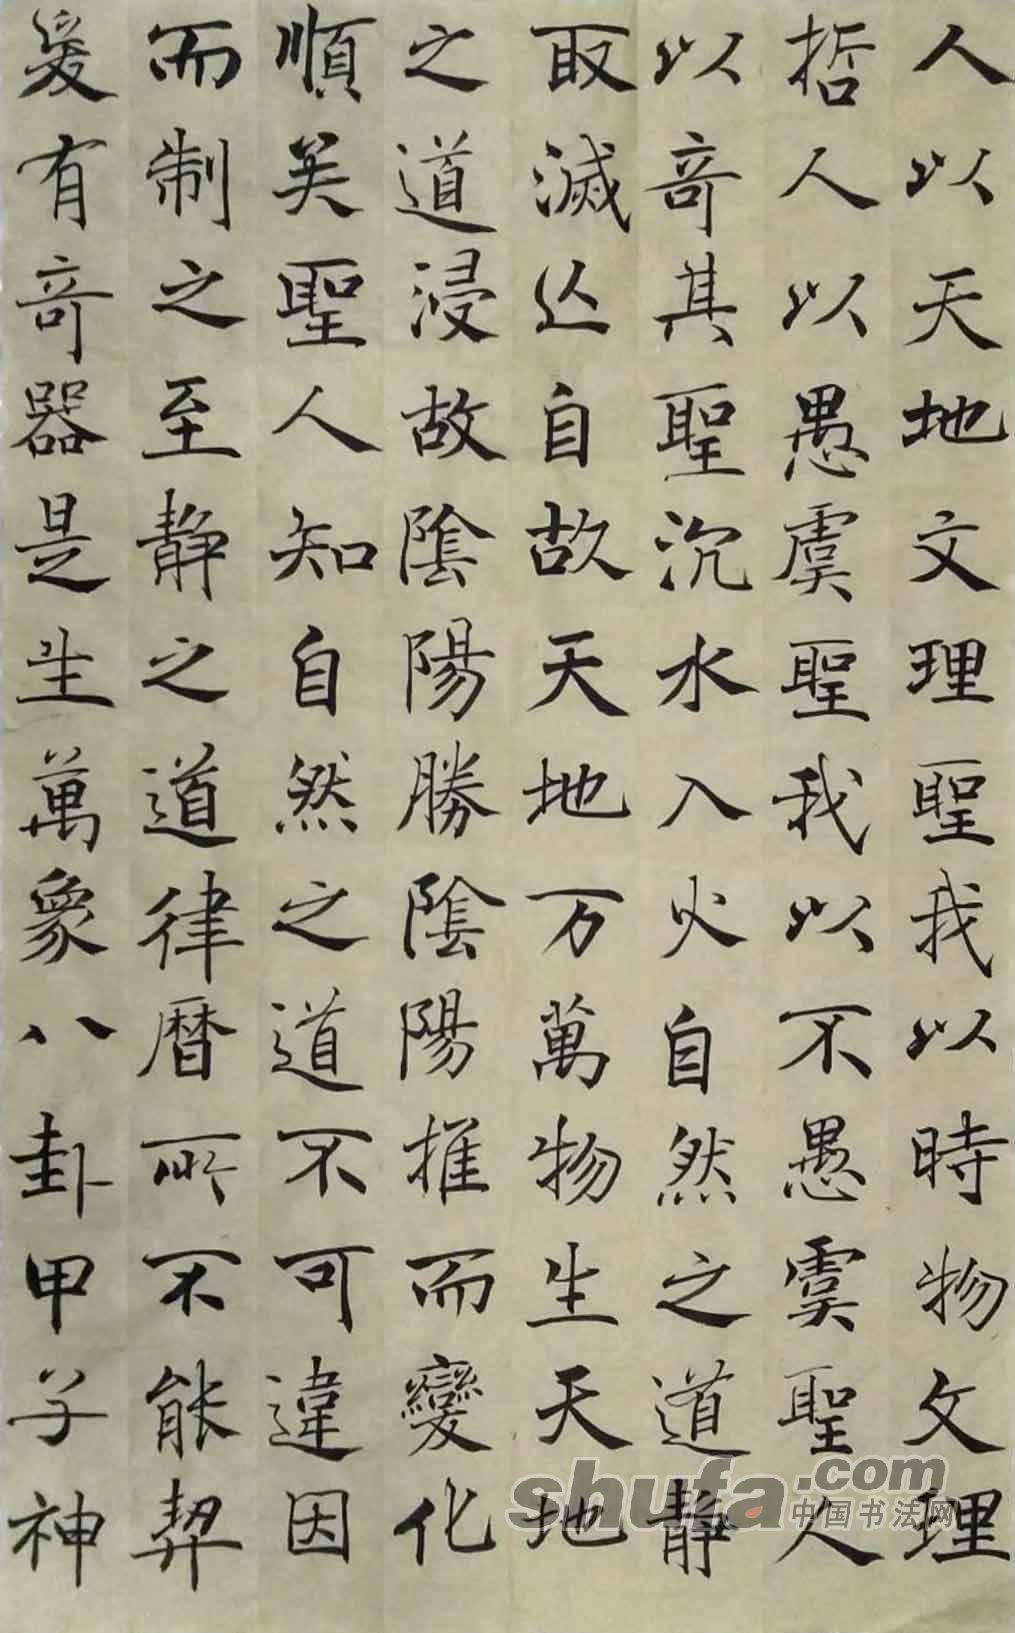 人以天地文理聖我以時物文理
哲人以愚虞聖我以不愚虞聖人
以奇其聖沉水入火自然之道静
取滅亾自故天地万萬物生天地
之道浸故陰陽勝陰陽推而變化
順矣聖人知自然之道不可違因
而制之至静之道律曆所不能契
爰有奇器是生萬象八卦甲子神
shufa.com
中国书法网